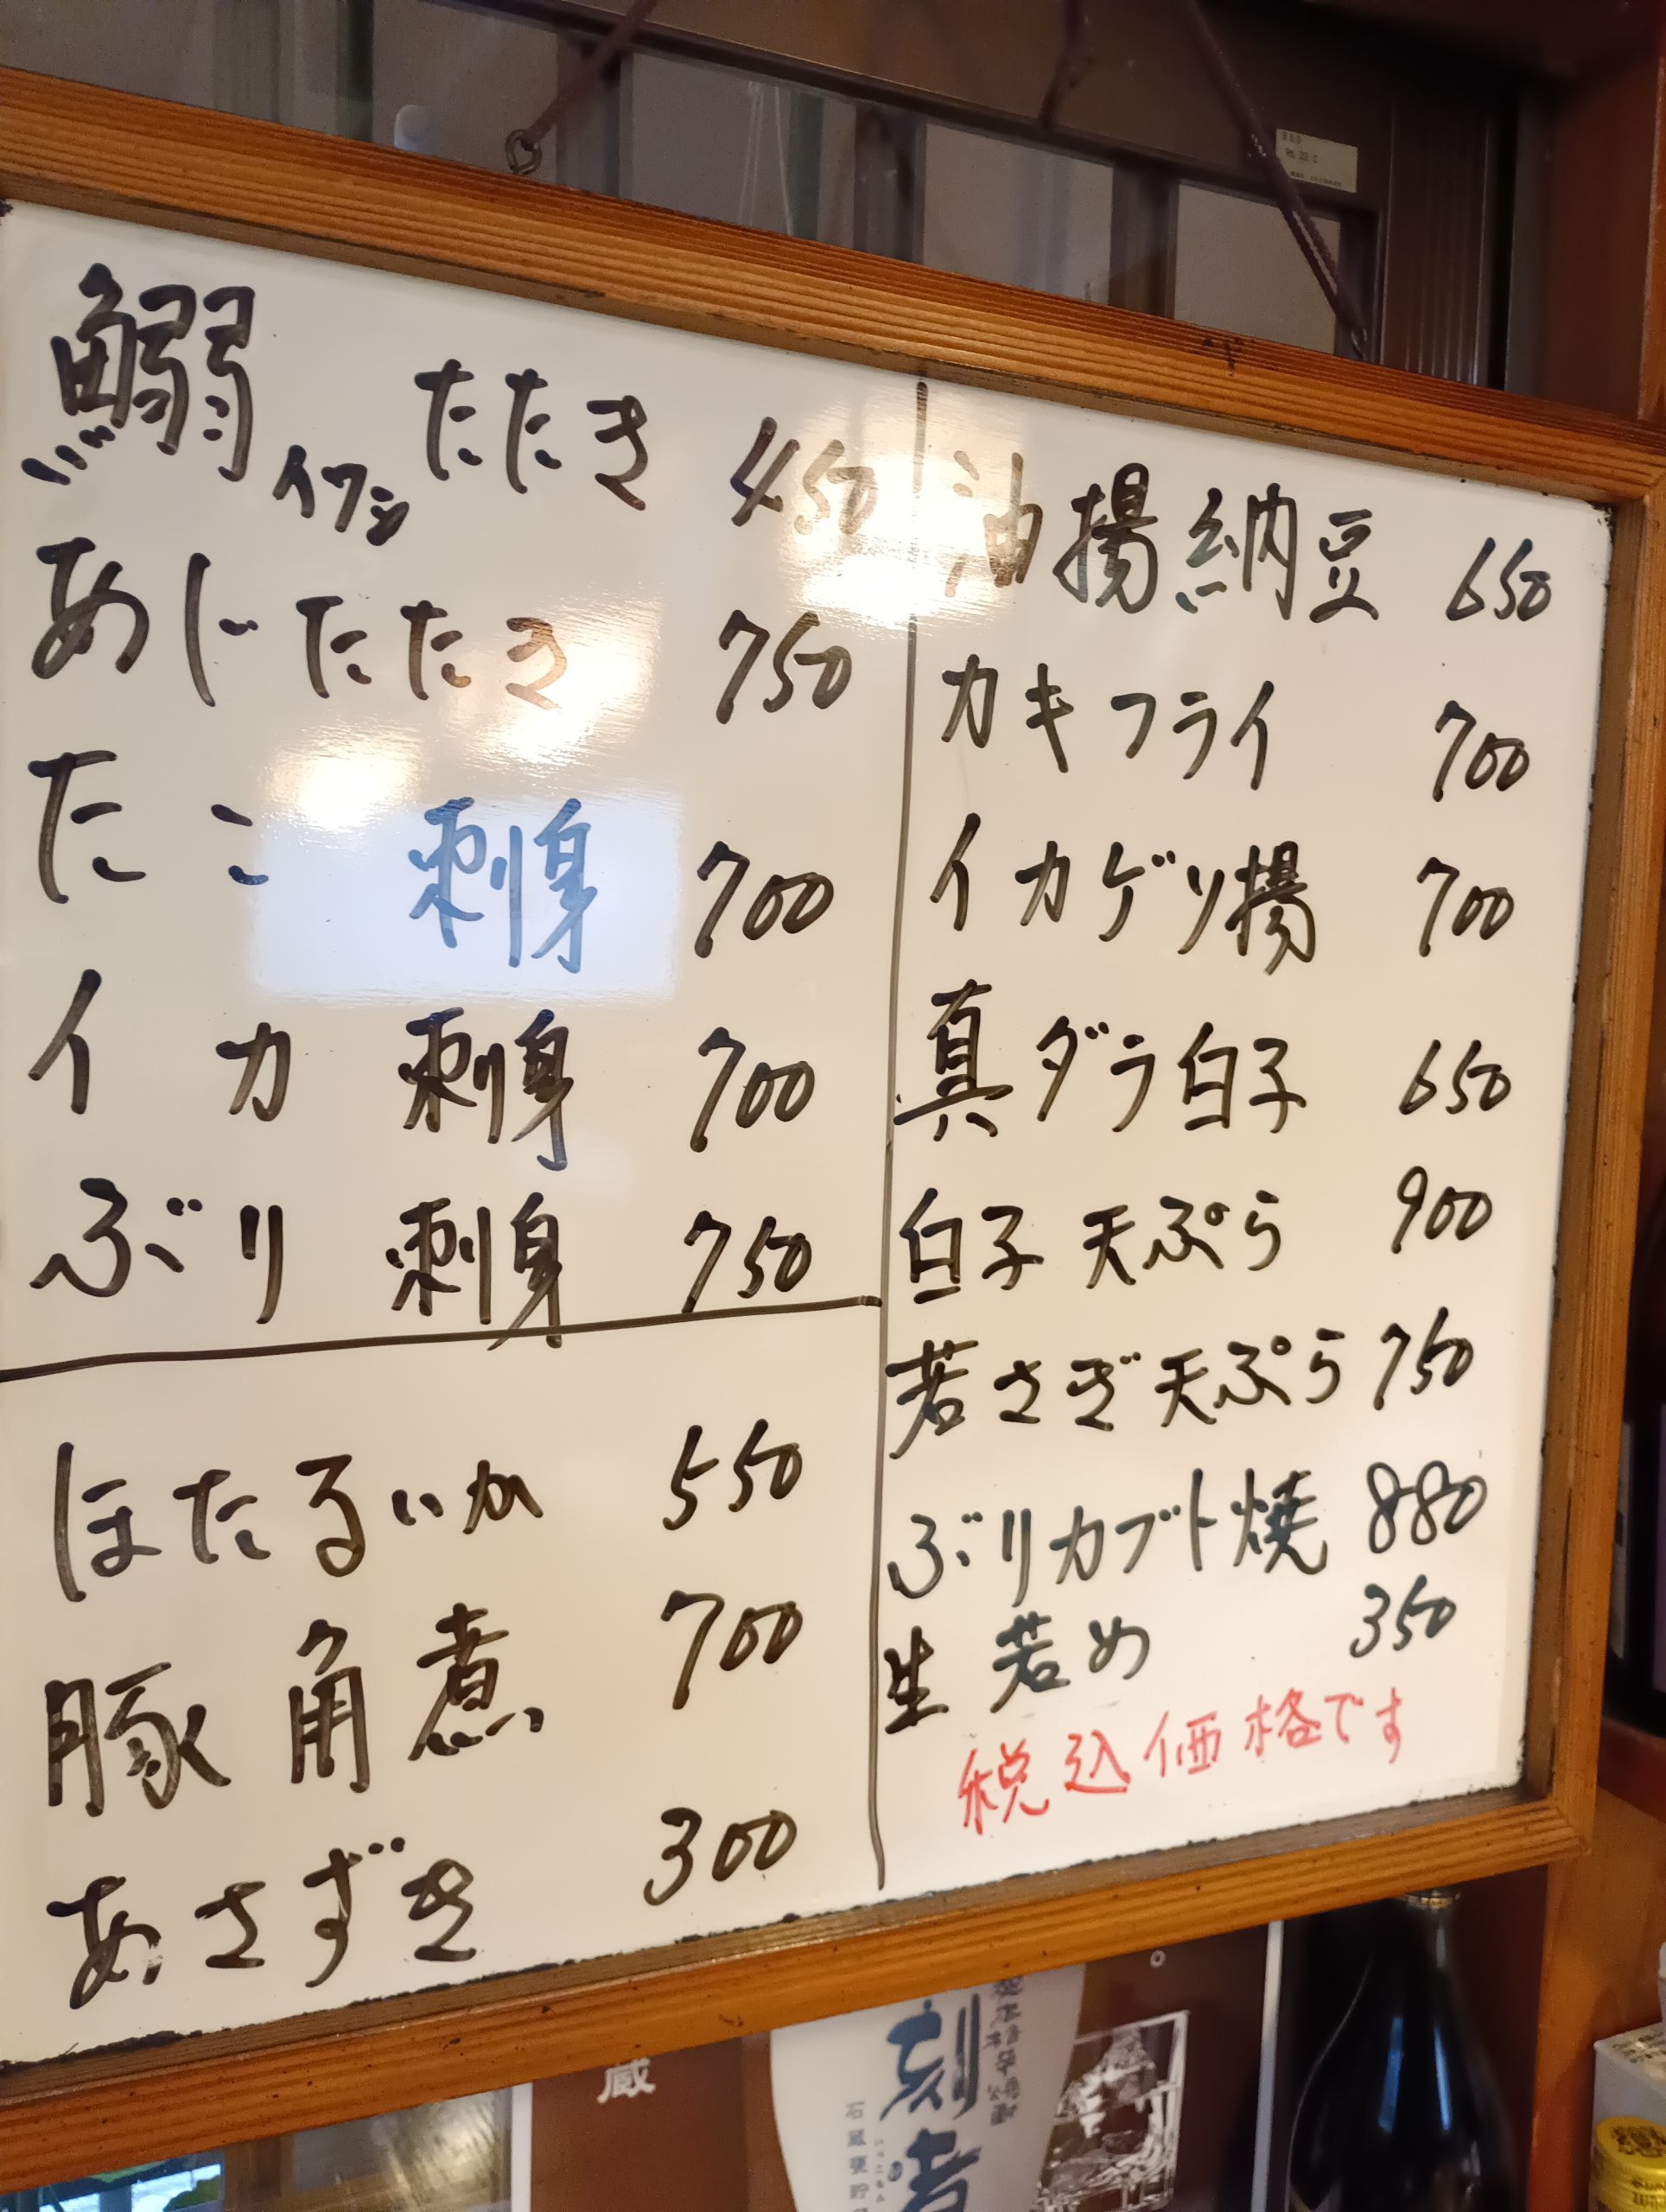 鰯 イワシ たたき 450
あじたたき 750
たこ 刺身 700
イカ 刺身 700
ぶり 刺身 750
ほたるいか 550
豚角煮 700
あさずき 300
油揚納豆 650
カキフライ 700
イカゲソ揚 700
真ダラ白子 650
白子天ぷら 900
若さぎ天ぷら 750
ぶりカブト焼 880
生若め 350
税込価格です
蔵
刻者